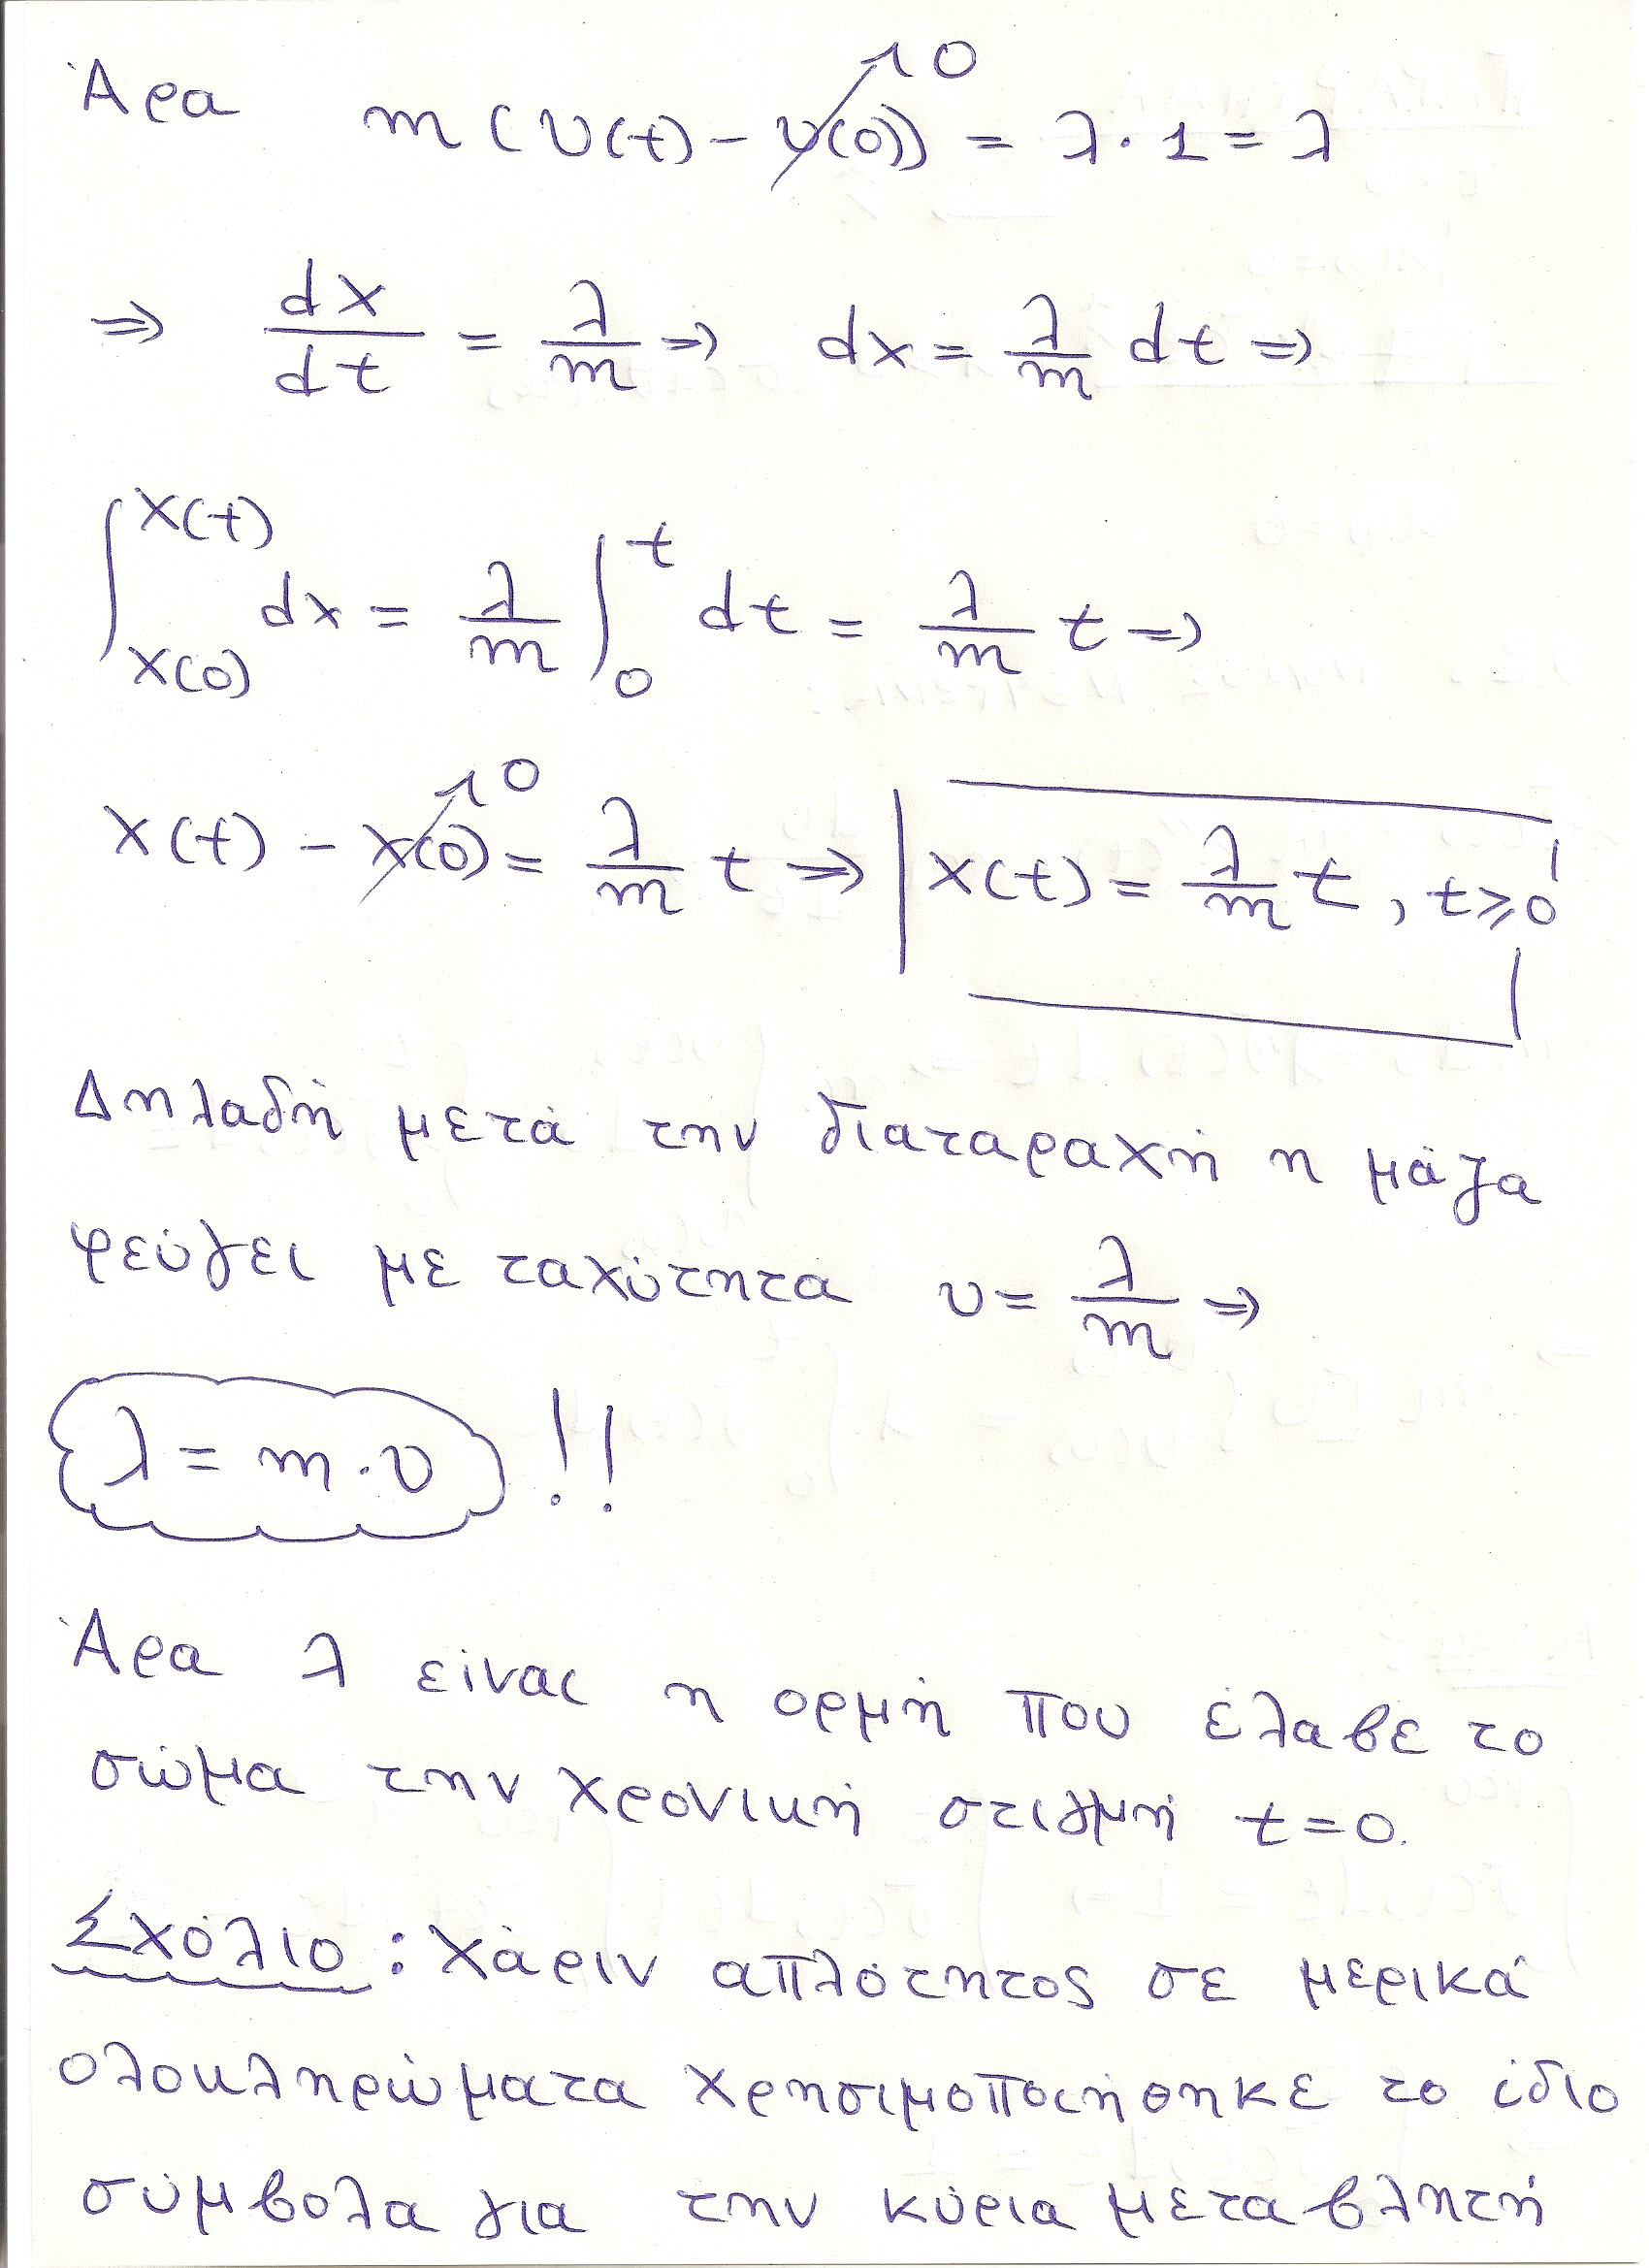 Άρα m(υ(t) - υ(0))→0 = λ·1 = λ
⇒ dx/dt = λ/m ⇒ dx = λ/m dt ⇒
∫_{x(0)}^{x(t)} dx = λ/m ∫_0^t dt = λ/m t ⇒
x(t) - x(0)→0 = λ/m t ⇒ x(t) = λ/m t, t≥0
Δηλαδή μετά την διαταραχή η μάζα
φεύγει με ταχύτητα υ = λ/m ⇒
λ = m·υ !!
Άρα λ είναι η ορμή που έλαβε το
σώμα την χρονική στιγμή t=0.
Σχόλιο: Χάριν απλότητος σε μερικά
ολοκληρώματα χρησιμοποιήθηκε το ίδιο
σύμβολα για την κύρια μεταβλητή